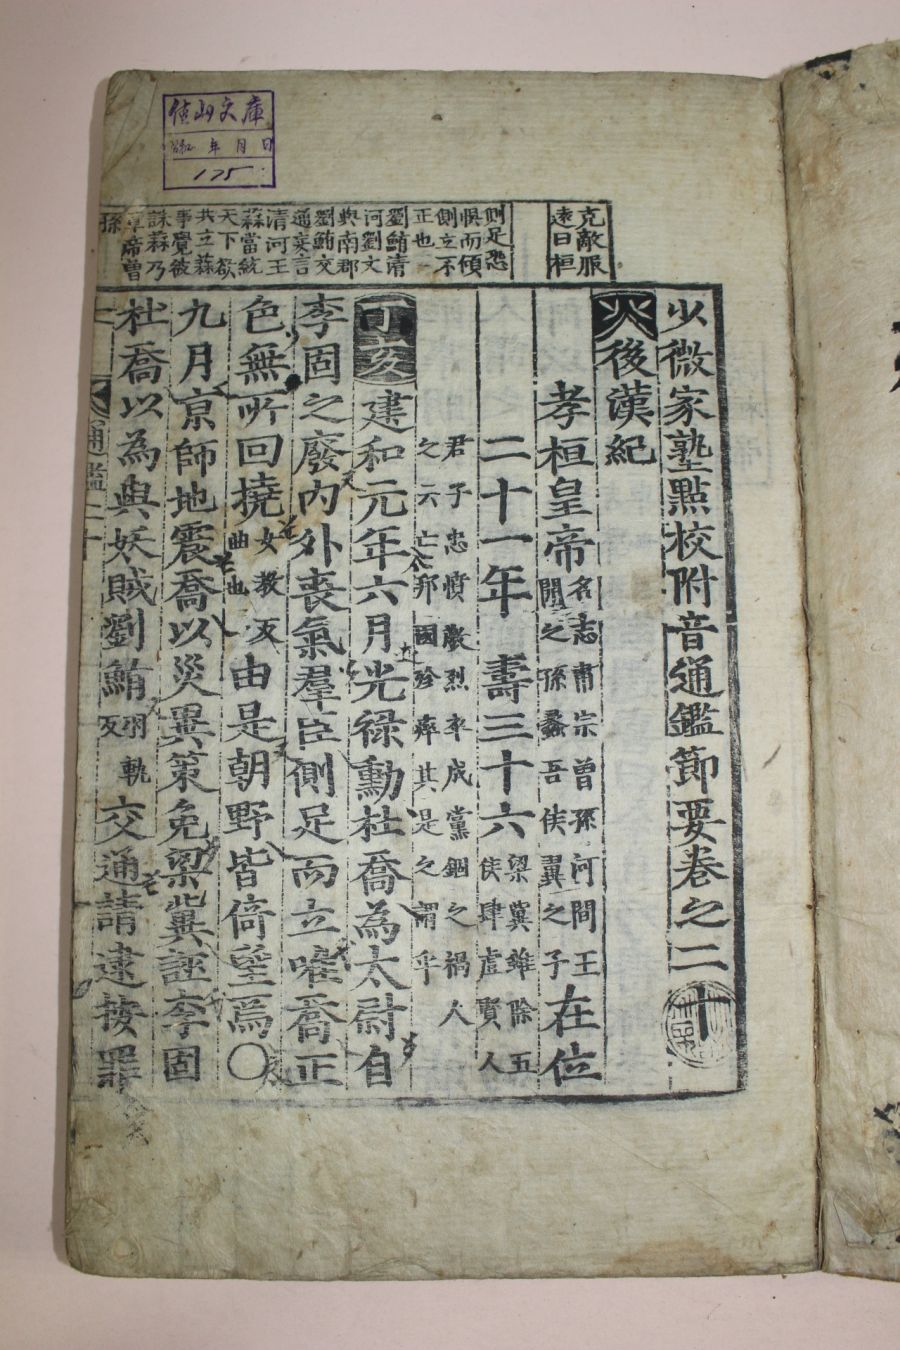 佳山文庫
昭和 年 月 日
175
克敵服
遠曰桓
側足恐
惧而傾
側立不
正也
劉鮪清
河劉文
與南郡
劉鮪交
通妄言
清河王
蒜當統
天下欲
共立蒜
事覺彼
誅蒜乃
章帝曾
孫
少微家塾點校附音通鑑節要卷之二十
火後漢紀
孝桓皇帝名志肅宗曾孫河間王開之孫蠡吾侯翼之子在位
二十一年壽三十六梁冀雖除五侯肆虐賢人
君子忠憤激烈卒成黨錮之禍人之云亡邦國殄瘁其是之謂乎
丁亥建和元年六月光祿勳杜喬為太尉自
李固之廢內外喪氣羣臣側足而立唯喬正
色無所回撓女教反曲也由是朝野皆倚望焉〇
九月京師地震喬以災異策免梁冀誣李固
杜喬以為與妖賊劉鮪羽軌反交通請逮按罪
通鑑二十